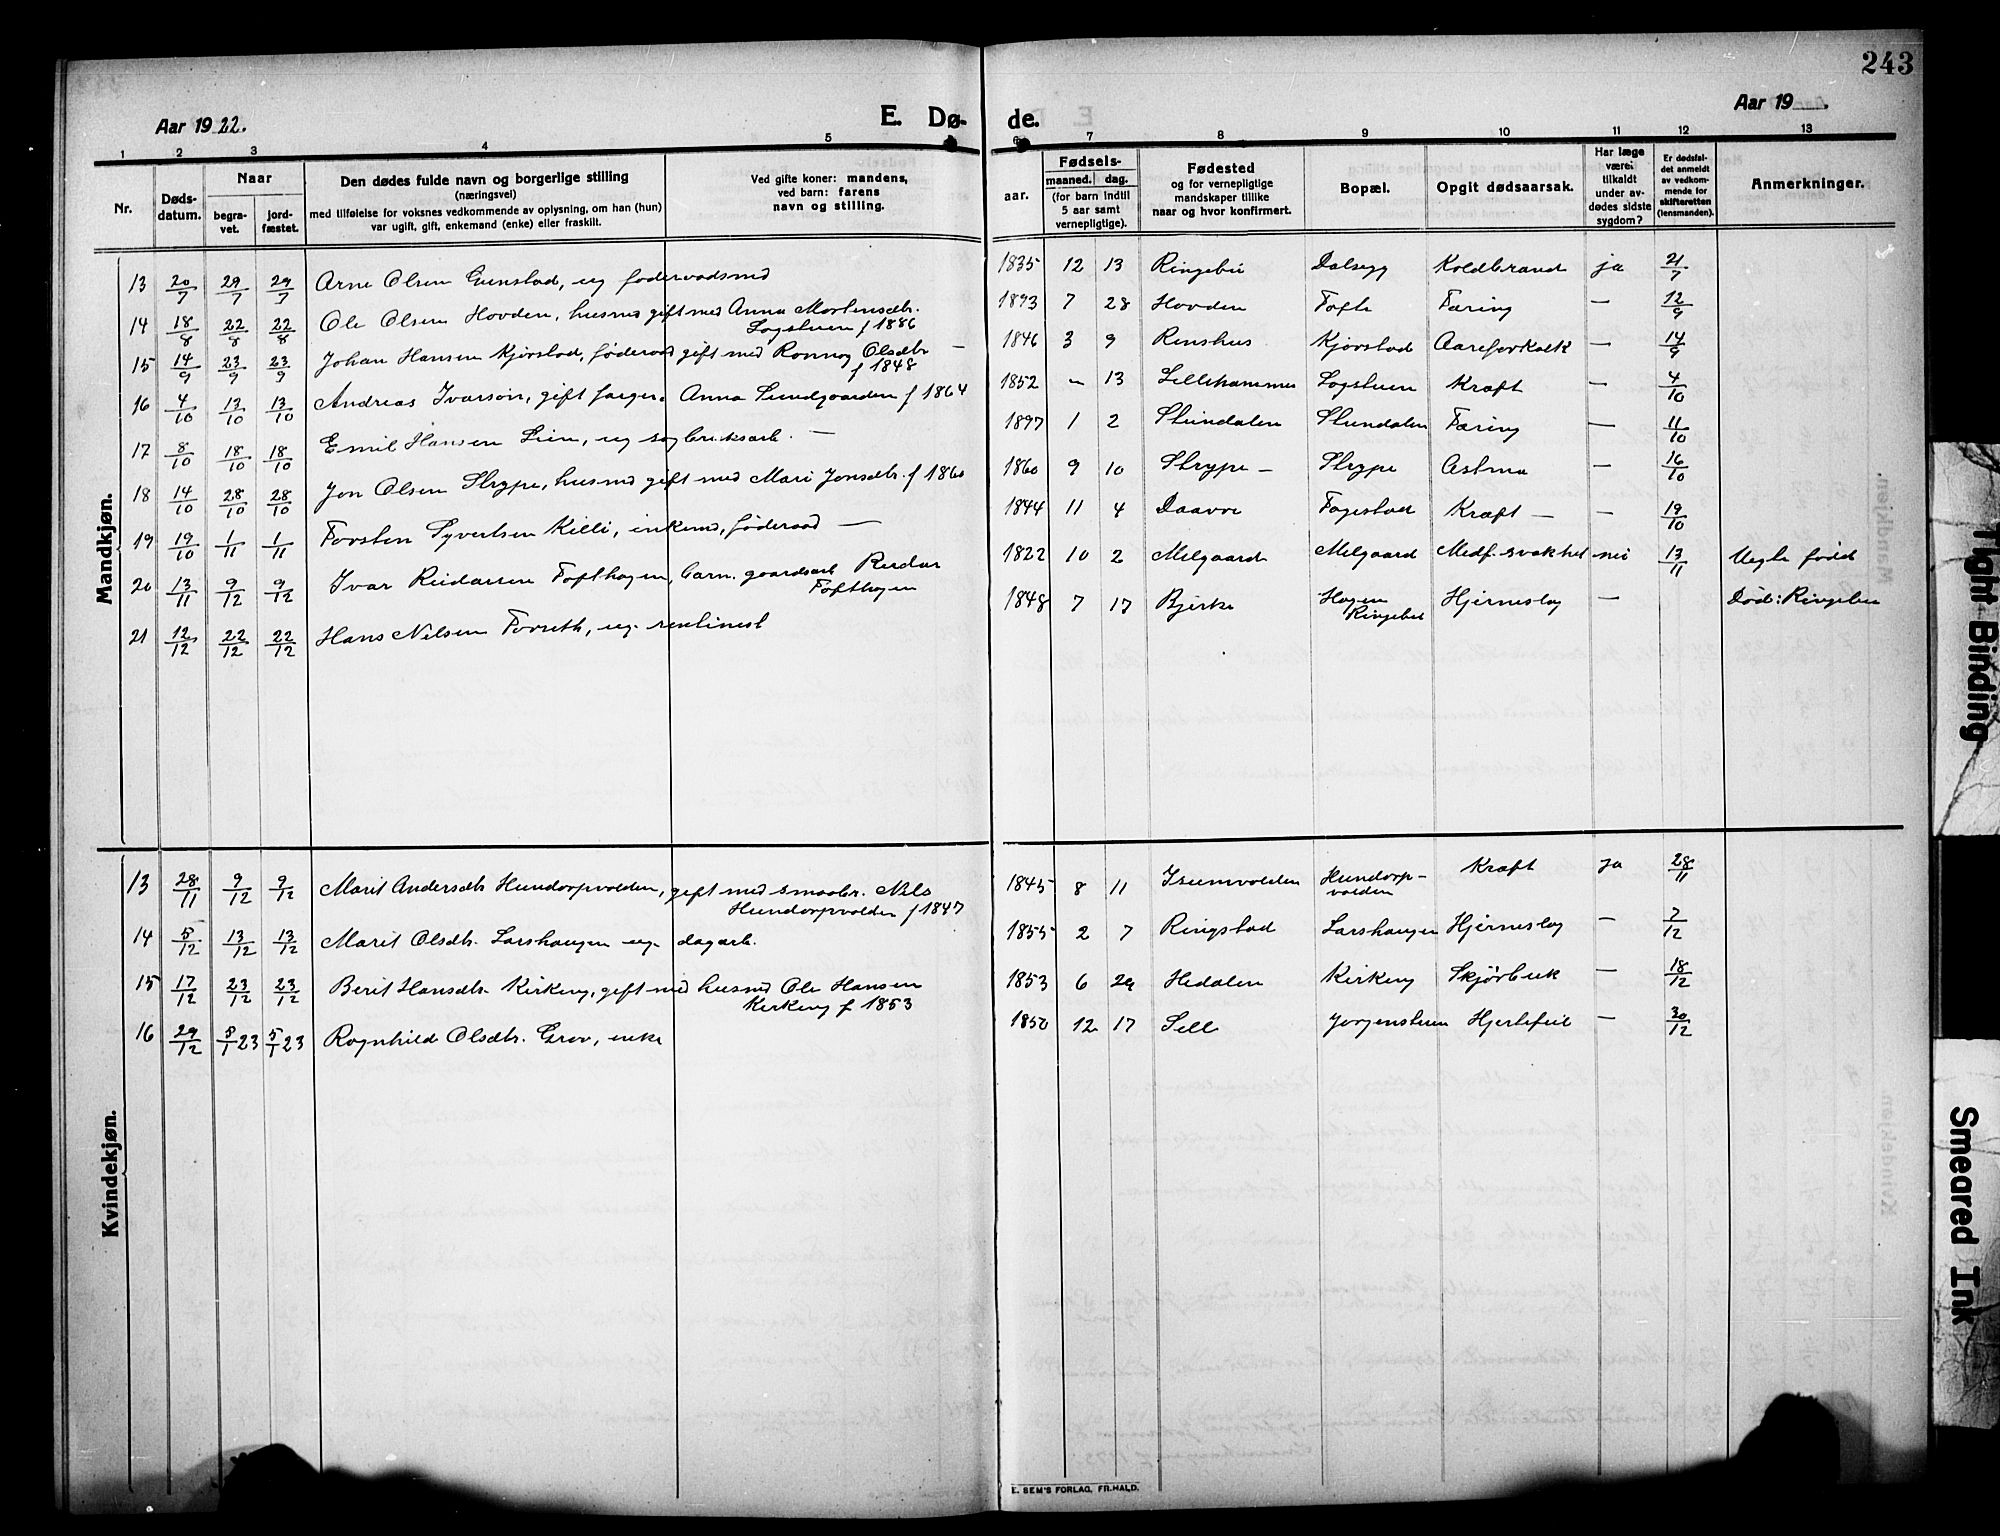 243
Aar 1922.
E. Dø-
de.
Aar 19 .
1 2 3 4 5 6 7 8 9 10 11 12 13
Nr.
Døds-
datum.
Naar
begra-
vet.
jord-
fæstet.
Den dødes fulde navn og borgerlige stilling
(næringsvei)
med tilføielse for voksnes vedkommende av oplysning, om han (hun)
var ugift, gift, enkemand (enke) eller fraskilt.
Ved gifte koner: mandens,
ved barn: farens
navn og stilling.
Fødsels-
aar.
maaned. dag.
(for barn indtil
5 aar samt
vernepligtige).
Fødested
og for vernepligtige
mandskaper tillike
naar og hvor konfirmert.
Bopæl.
Opgit dødsaarsak.
Har læge
været
tilkaldt
under av-
dødes sidste
sygdom?
Er dødsfal-
det anmeldt
av vedkom-
mende for
skifteretten
(lensmanden).
Anmerkninger.
Mandkjøn.
13 20/7 29/7 29/7 Arne Olsen Gunstad, ug føderaadsmd 1835 12 13 Ringebu Dalsegg Koldbrand ja 21/7
14 18/8 22/8 22/8 Ole Olsen Hovden, husmd gift med Anna Mortensdtr. 1893 7 28 Hovden Tofte Tæring — 12/9
Logstuen f 1886
15 14/9 23/9 23/9 Johan Hansen Kjørstad, føderaad gift med Ronnog Olsdtr — 1846 3 9 Renshus Kjørstad Aareforkalk — 14/9
f 1848
16 4/10 13/10 13/10 Andreas Ivarson, gift farger. Anna Sundgaarden f 1864 1852 — 13 Lillehammer Logstuen Kræft — 4/10
17 8/10 18/10 18/10 Emil Hansen Lien, ug sagbruksarb. — 1897 1 2 Stundalen Stundalen Tæring — 11/10
18 14/10 28/10 28/10 Jon Olsen Strype, husmd gift med Mari Jonsdtr. f 1860 1860 9 10 Strype — Strype Astma — 16/10
19 19/10 1/11 1/11 Torsten Syvertsen Killi, enkemd, føderaad — 1844 11 4 Daavre Fogestad Kræft — — 19/10
20 13/11 9/12 9/12 Ivar Reidarsen Tofthagen, barn. gaardsarb Reidar 1922 10 2 Melgaard Melgaard Medf. svakhet nei 13/11 Uegte född
Tofthagen
21 12/12 22/12 22/12 Hans Nilsen Forreth, ug. rentinest 1848 7 17 Bjerke Hagen Hjerneslag — Död: Ringebu
Ringebu
Kvindekjøn.
13 28/11 9/12 9/12 Marit Andersdtr Hundorpvolden, gift med smaabr. Nils 1845 8 11 Isumvolden Hundorp- Kræft ja 28/11
Hundorpvolden f 1847 volden
14 5/12 13/12 13/12 Marit Olsdtr. Larshaugen ug. dagarb. 1855 2 7 Ringstad Larshaugen Hjerneslag — 7/12
15 17/12 23/12 23/12 Berit Hansdtr. Kirkeng, gift med husmd Ole Hansen 1853 6 29 Hedalen Kirkeng Skjørbuk — 18/12
Kirkeng f 1853
16 29/12 5/1 23 5/1 23 Ragnhild Olsdtr. Grov, enke 1850 12 17 Sell Jorgenstuen Hjertefeil — 30/12
E. SEM'S FORLAG, FR.HALD.
Tight Binding
Smeared Ink